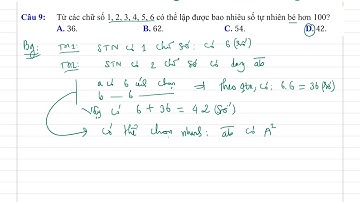 Câu 9: Từ các chữ số 1, 2, 3, 4, 5, 6 có thể lập được bao nhiêu số tự nhiên bé hơn 100?
A. 36. B. 62. C. 54. D. 42.
Bg: TH1: STN có 1 chữ số: có 6 (số)
TH2: STN có 2 chữ số có dạng ab
a có 6 cách chọn
b — 6 — ⇒ theo qtn, có: 6.6 = 36 (số)
Vậy có 6 + 36 = 42 (số)
có thể chọn nhanh: ab có A²